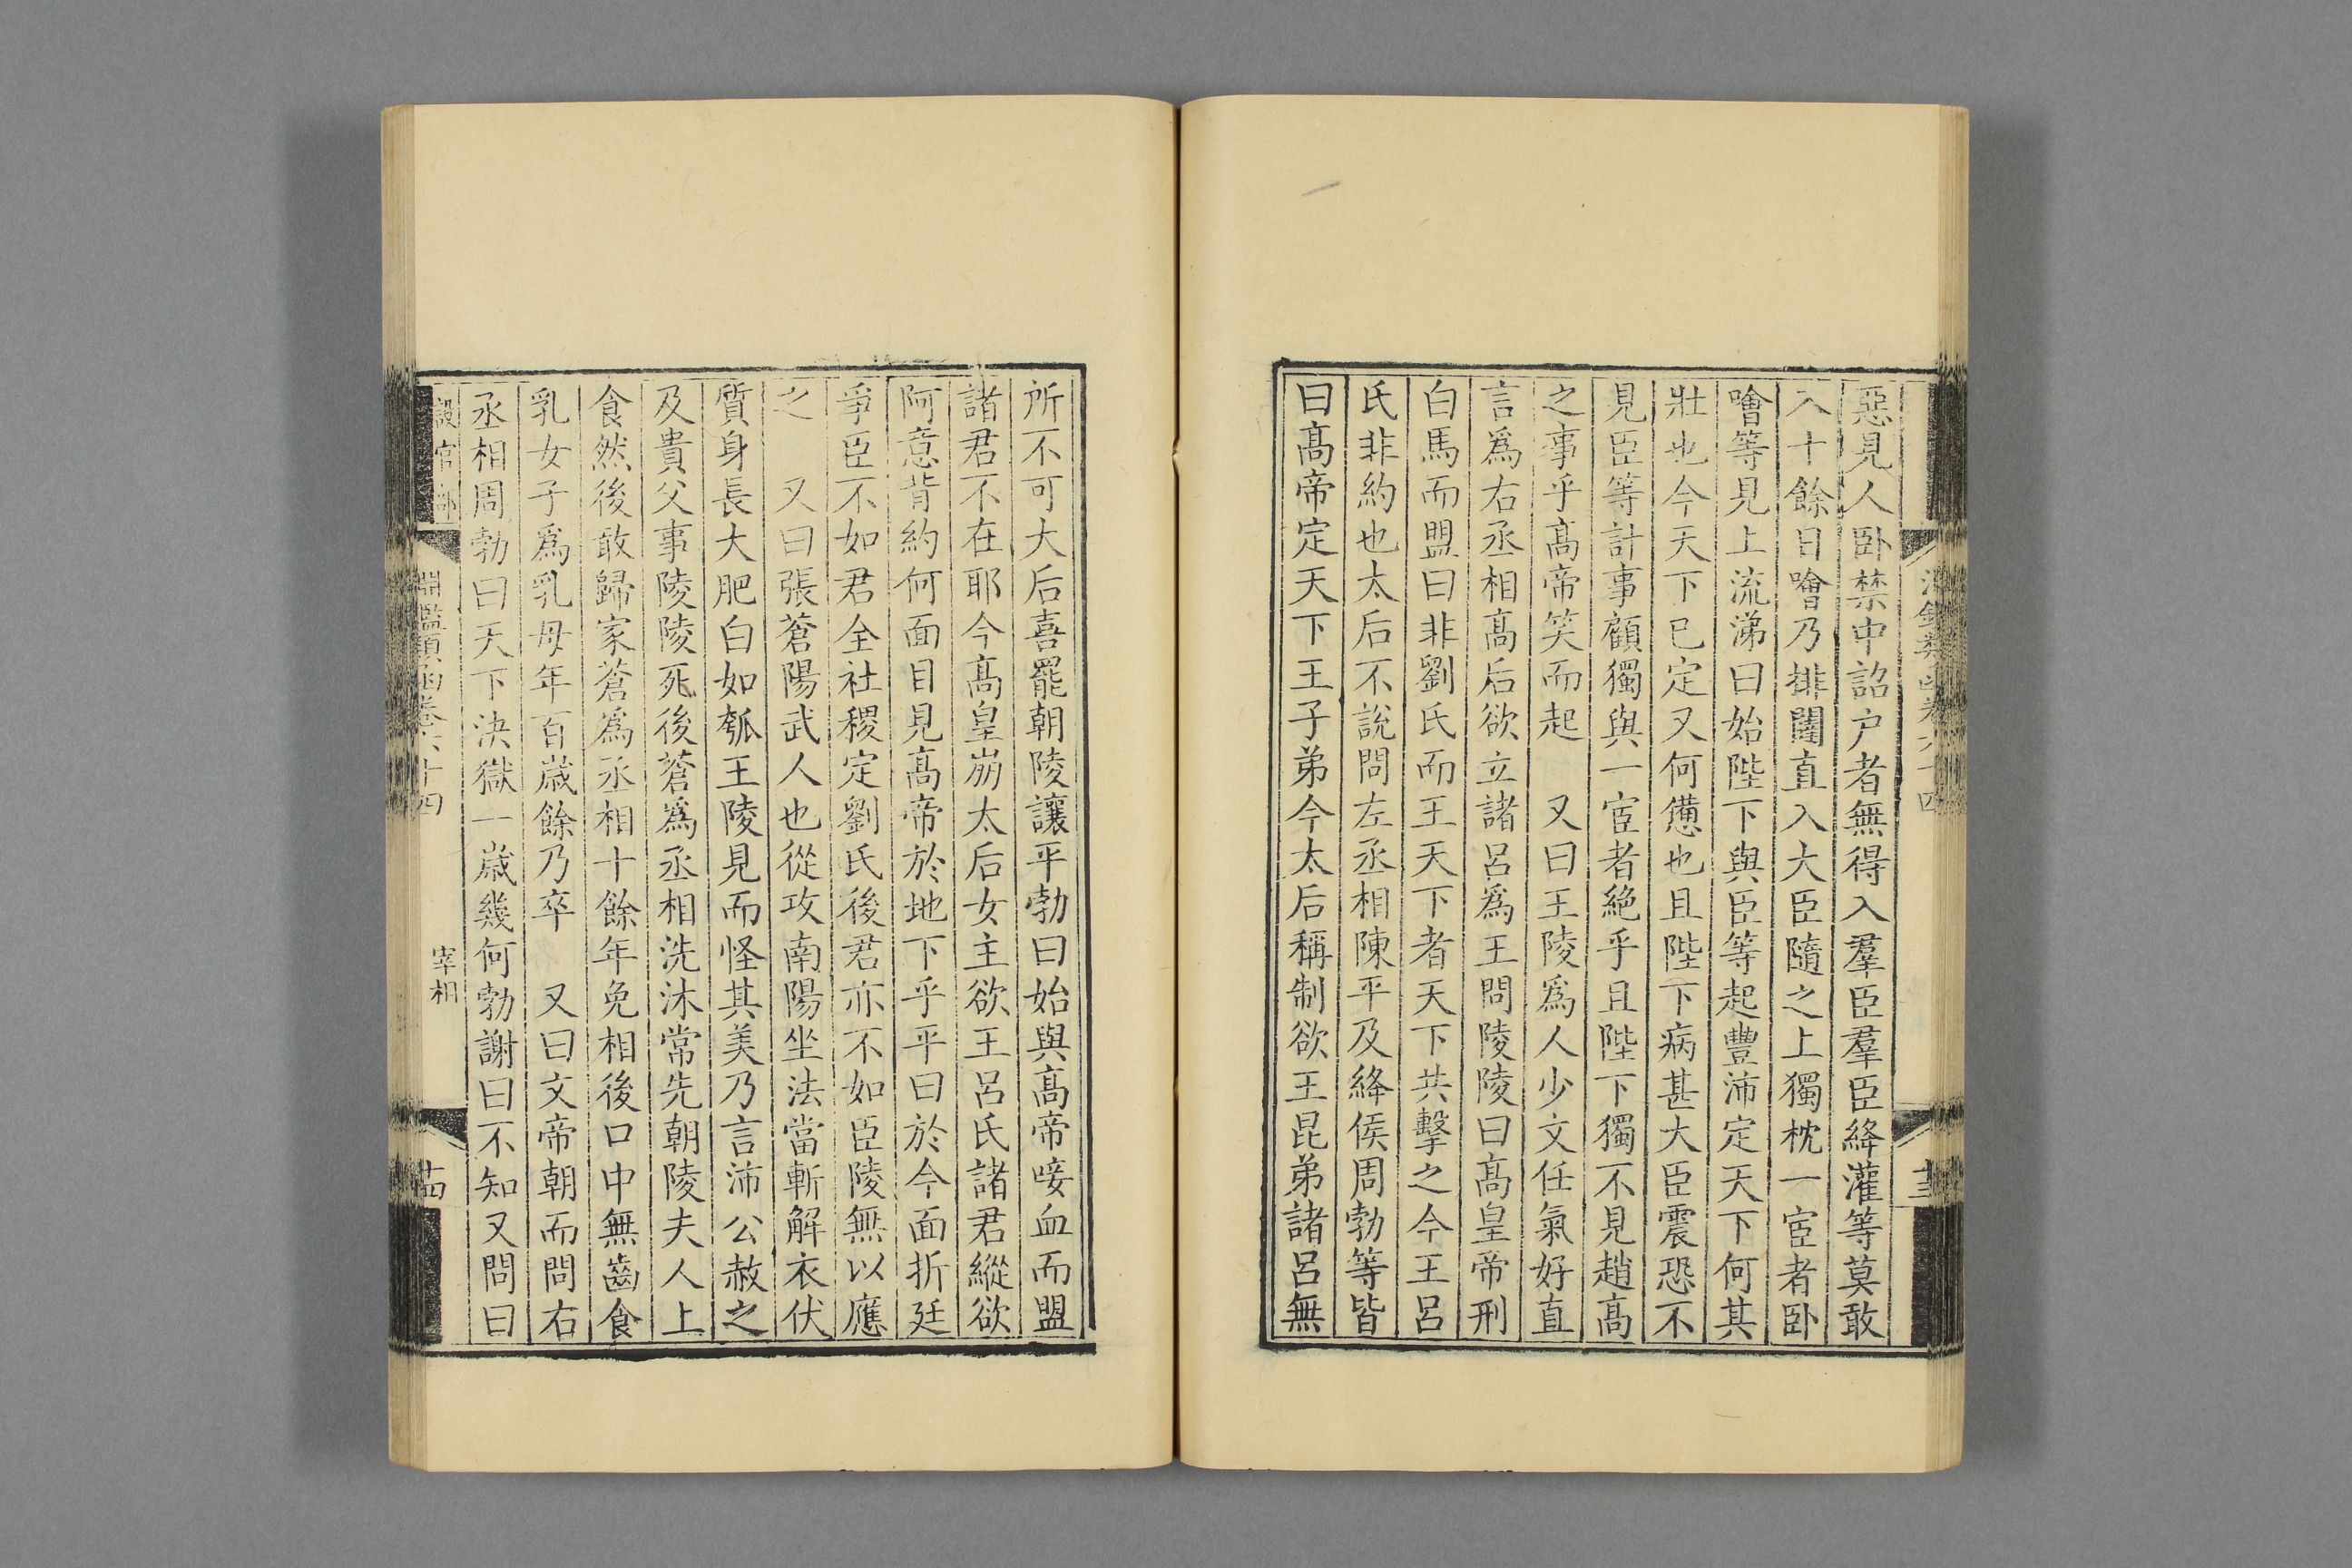 惡見人卧禁中詔户者無得入羣臣羣臣絳灌等莫敢
入十餘日噲乃排闥直入大臣隨之上獨枕一宦者卧
噲等見上流涕曰始陛下與臣等起豐沛定天下何其
壯也今天下已定又何憊也且陛下病甚大臣震恐不
見臣等計事顧獨與一宦者絶乎且陛下獨不見趙高
之事乎高帝笑而起　又曰王陵爲人少文任氣好直
言爲右丞相高后欲立諸呂爲王問陵陵曰高皇帝刑
白馬而盟曰非劉氏而王天下者天下共擊之今王呂
氏非約也太后不說問左丞相陳平及絳侯周勃等皆
曰高帝定天下王子弟今太后稱制欲王昆弟諸呂無
所不可大后喜罷朝陵讓平勃曰始與高帝唼血而盟
諸君不在耶今高皇崩太后女主欲王呂氏諸君縱欲
阿意背約何面目見高帝於地下乎平曰於今面折廷
爭臣不如君全社稷定劉氏後君亦不如臣陵無以應
之　又曰張蒼陽武人也從攻南陽坐法當斬解衣伏
質身長大肥白如瓠王陵見而怪其美乃言沛公赦之
及貴父事陵陵死後蒼爲丞相洗沐常先朝陵夫人上
食然後敢歸家蒼爲丞相十餘年免相後口中無齒食
乳女子爲乳母年百歲餘乃卒　又曰文帝朝而問右
丞相周勃曰天下決獄一歲幾何勃謝曰不知又問曰
設官部
淵鑑類函卷六十四
宰相
十四